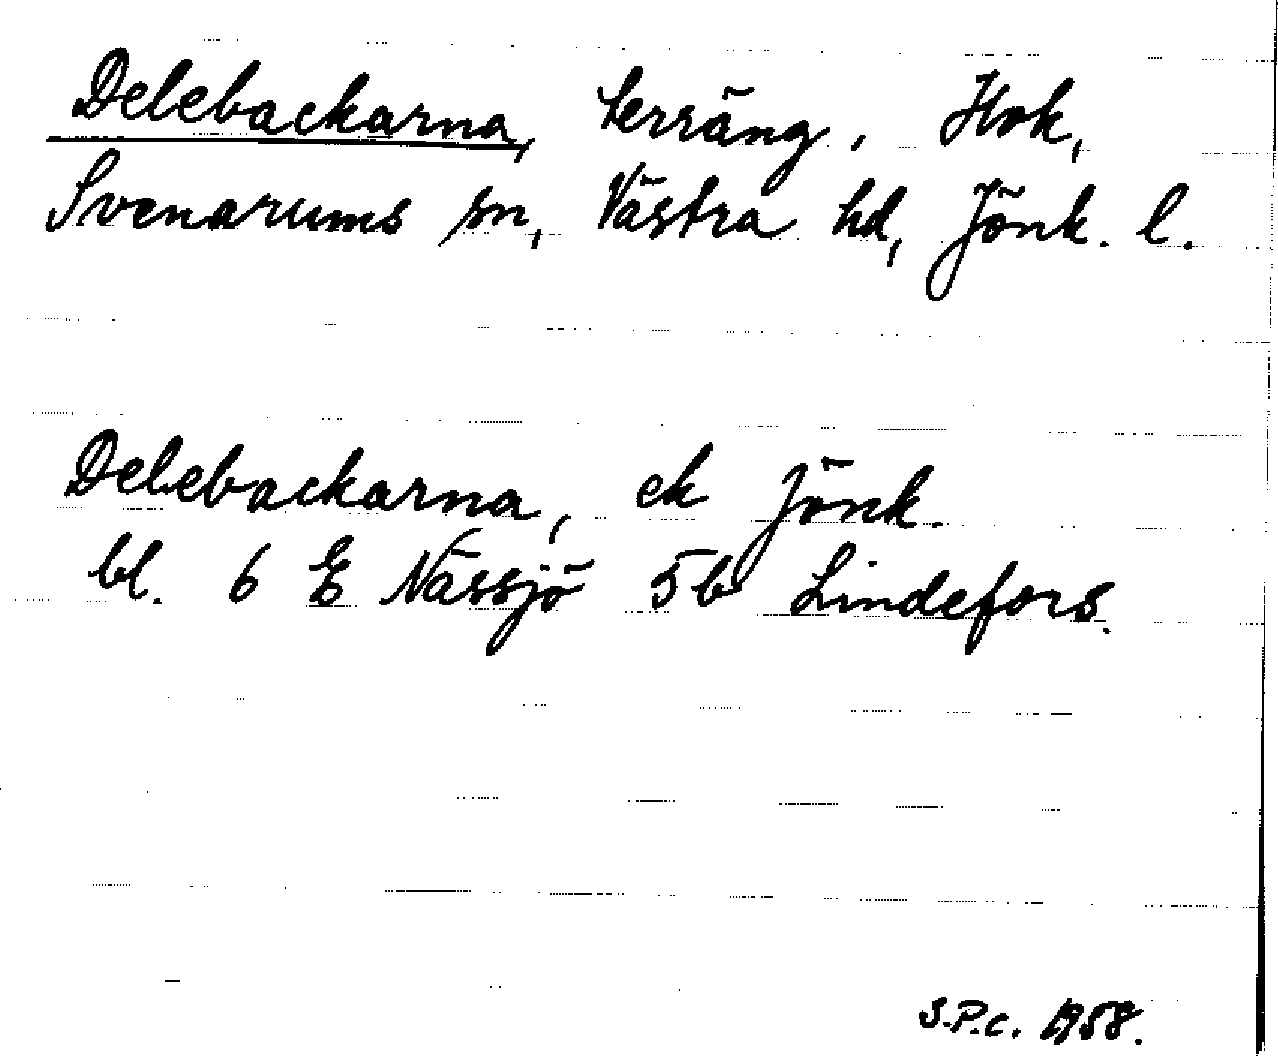 Delebackarna, terräng, Hok,
Svenarums sn, Västra hd, Jönk. l.
Delebackarna, ek Jönk.
bl. 6 E Nässjö 5b Lindefors.
S.P.C. 1958.